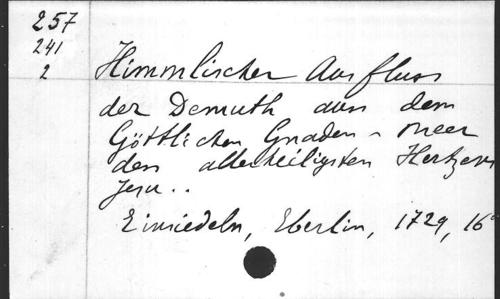 257
241
2
Himmlischer Ausfluss
der Demuth aus dem
Göttlichen Gnaden - meer
des allerheiligsten Hertzens
Jesu..
Einsiedeln, Eberlin, 1729, 16°